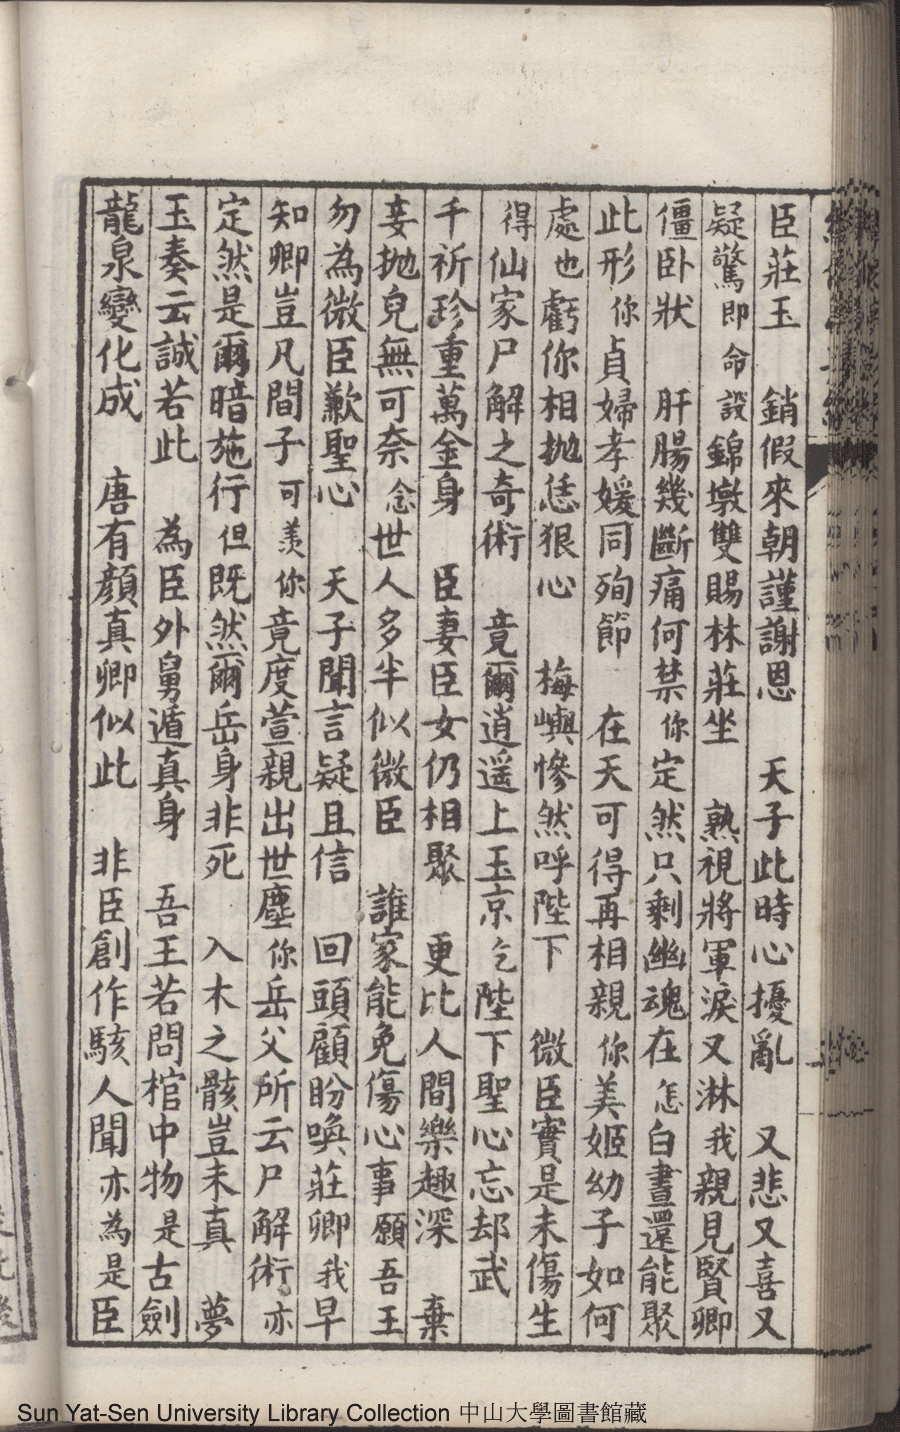 臣莊玉　銷假來朝謹謝恩　天子此時心擾亂　又悲又喜又
疑驚即命設錦墩雙賜林莊坐　熟視將軍淚又淋我親見賢卿
僵卧狀　肝腸幾斷痛何禁你定然只剩幽魂在怎白晝還能聚
此形你貞婦孝媛同殉節　在天可得再相親你美姬幼子如何
處也虧你相抛恁狠心　梅嶼慘然呼陛下　微臣實是未傷生
得仙家尸解之奇術　竟爾逍遥上玉京乞陛下聖心忘却武
千祈珍重萬金身　臣妻臣女仍相聚　更比人間樂趣深　棄
妾抛兒無可奈念世人多半似微臣　誰家能免傷心事願吾王
勿為微臣歉聖心　天子聞言疑且信　回頭顧盼喚莊卿我早
知卿豈凡間子可羨你竟度萱親出世塵你岳父所云尸解術亦
定然是爾暗施行但既然爾岳身非死　入木之骸豈未真　夢
玉奏云誠若此　為臣外舅遁真身　吾王若問棺中物是古劍
龍泉變化成　唐有顔真卿似此　非臣創作駭人聞亦為是臣
Sun Yat-Sen University Library Collection 中山大學圖書館藏